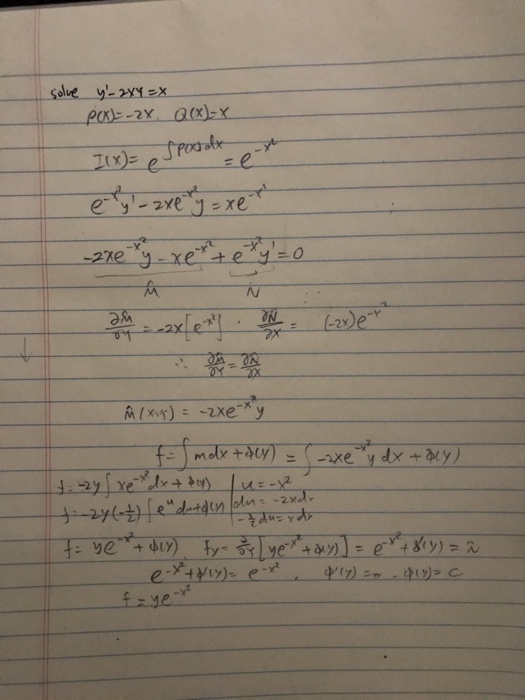 solve y'-2xy=x
P(x)=-2x. Q(x)=x
I(x)= e^∫p(x)dx = e^-x²
e^-x² y' - 2xe^-x² y = xe^-x²
-2xe^-x² y - xe^-x² + e^-x² y' = 0
M̂ N̂
∂M̂/∂y = -2x[e^-x²] . ∂N̂/∂x = (-2x)e^-x²
∴ ∂M̂/∂y = ∂N̂/∂x
M̂(x,y) = -2xe^-x² y
f = ∫mdx + φ(y) = ∫-2xe^-x² y dx + φ(y)
f = -2y∫xe^-x² dx + φ(y) | u = -x²
f = -2y(-½)∫e^u du + φ(y) | du = -2xdx
-½du = xdx
f = ye^-x² + φ(y). fy = ∂/∂y[ye^-x² + φ(y)] = e^-x² + φ'(y) = N̂
e^-x² + φ'(y) = e^-x² . φ'(y) = 0 . φ(y) = C
f = ye^-x²